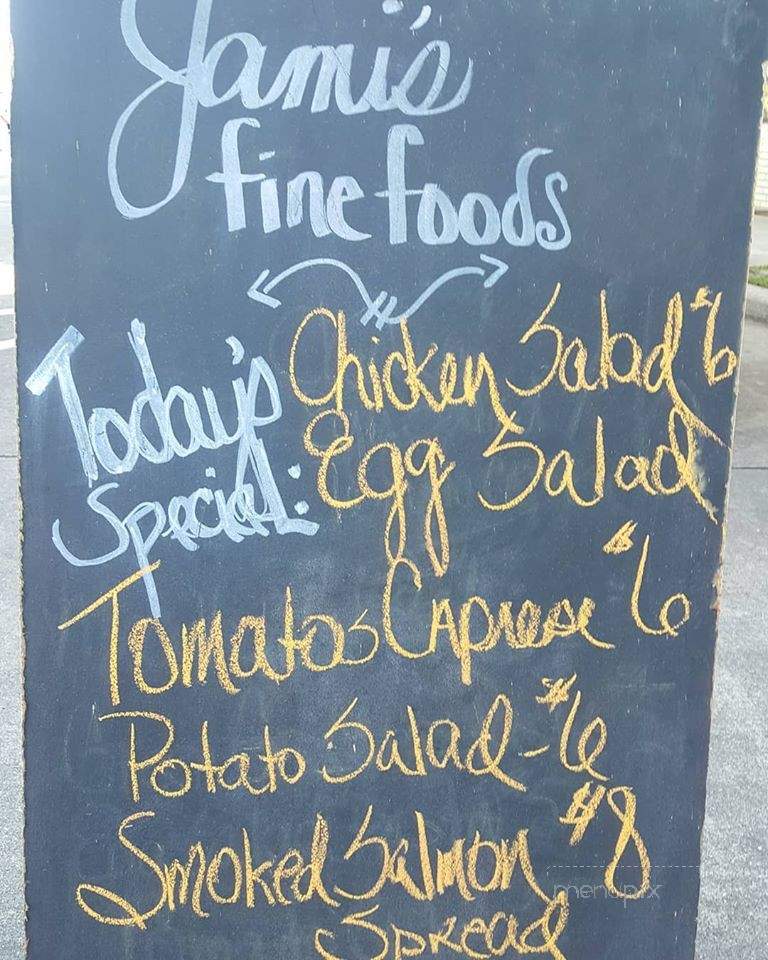 Jami's
fine foods
Today's
Special:
Chicken Salad $6
Egg Salad
Tomatos Caprese $6
Potato Salad - $6
Smoked Salmon $8
Spread
menupix